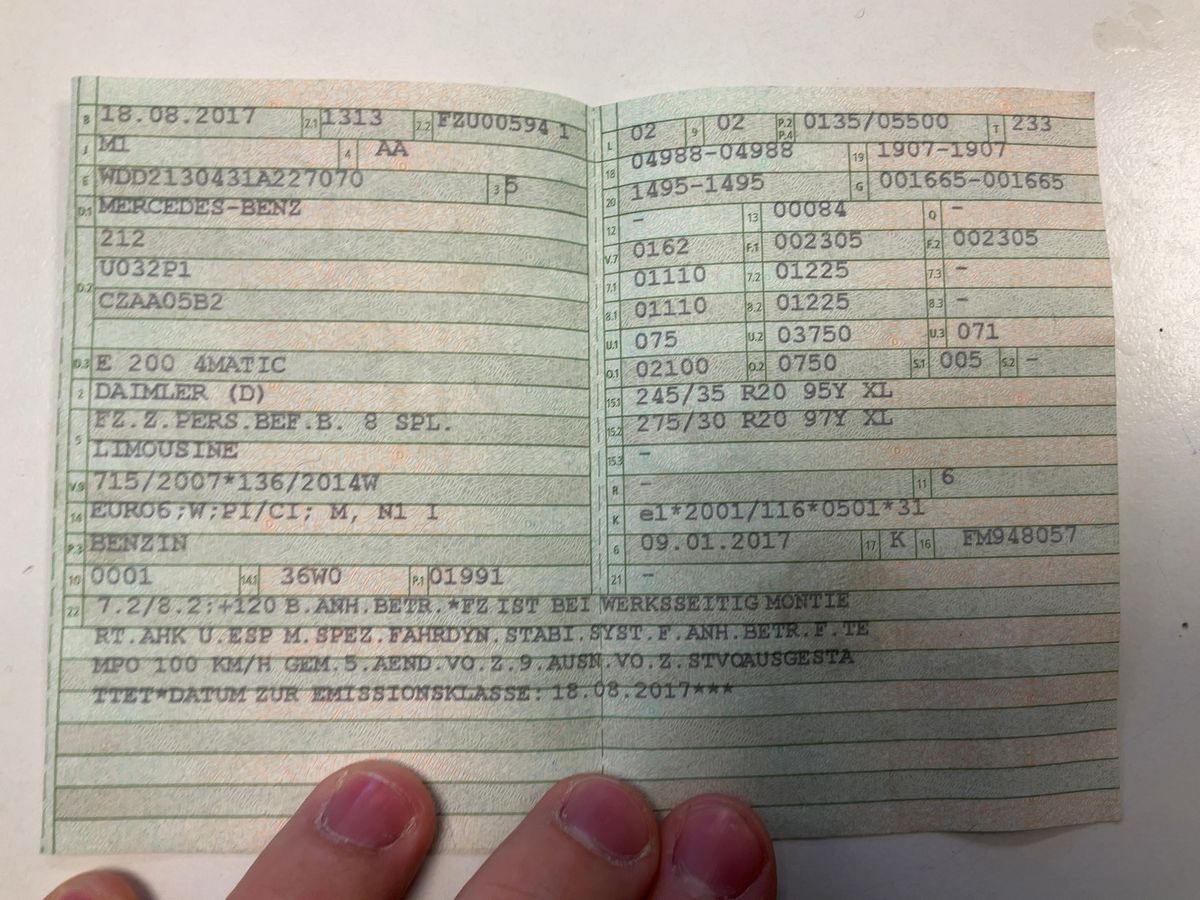 B 18.08.2017 2.1 1313 2.2 FZU00594 1
J M1 4 AA
E WDD2130431A227070 3 5
D.1 MERCEDES-BENZ
212
D.2 U032P1
CZAA05B2
D.3 E 200 4MATIC
2 DAIMLER (D)
5 FZ.Z.PERS.BEF.B. 8 SPL.
LIMOUSINE
V.9 715/2007*136/2014W
14 EURO6;W;PI/CI; M, N1 I
P.3 BENZIN
10 0001 14.1 36W0 P.1 01991
L 02 9 02 P.2 P.4 0135/05500 T 233
18 04988-04988 19 1907-1907
20 1495-1495 G 001665-001665
12 - 13 00084 Q -
V.7 0162 F.1 002305 F.2 002305
7.1 01110 7.2 01225 7.3 -
8.1 01110 8.2 01225 8.3 -
U.1 075 U.2 03750 U.3 071
O.1 02100 O.2 0750 S.1 005 S.2 -
15.1 245/35 R20 95Y XL
15.2 275/30 R20 97Y XL
15.3 -
R - 11 6
K e1*2001/116*0501*31
6 09.01.2017 17 K 16 FM948057
21 -
22 7.2/8.2:+120 B.ANH.BETR.*FZ IST BEI WERKSSEITIG MONTIE
RT.AHK U.ESP M.SPEZ.FAHRDYN.STABI.SYST.F.ANH.BETR.F.TE
MPO 100 KM/H GEM.5.AEND.VO.Z.9.AUSN.VO.Z.STVOAUSGESTA
TTET*DATUM ZUR EMISSIONSKLASSE: 18.08.2017***